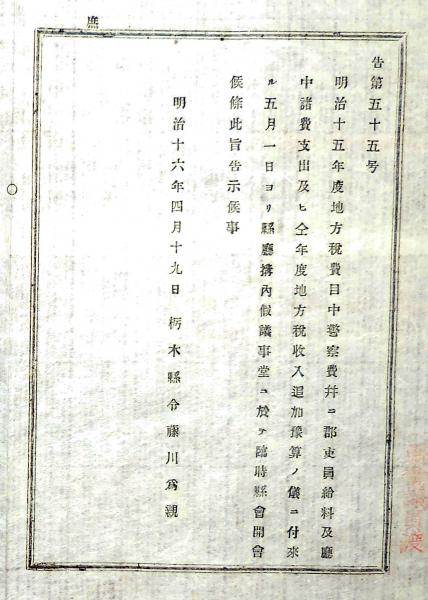 庶
告第五十五号
明治十五年度地方税費目中警察費幷ニ郡吏員給料及廳
中諸費支出及ヒ仝年度地方税收入追加豫算ノ儀ニ付來
ル五月一日ヨリ縣廳搆内假議事堂ニ於テ臨時縣會開會
候條此旨告示候事
明治十六年四月十九日 栃木縣令藤川爲親